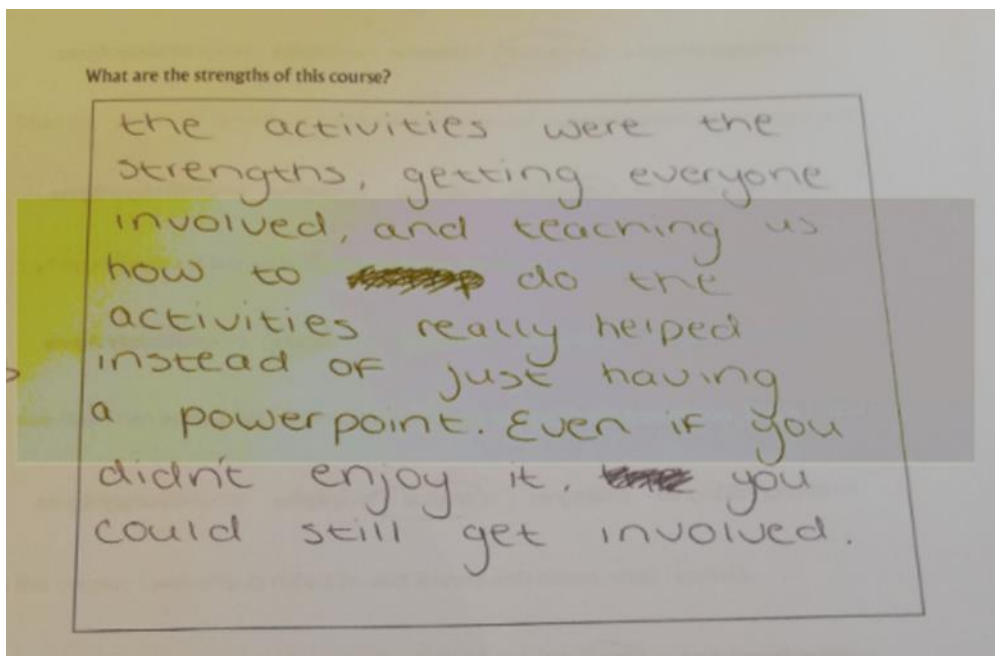 What are the strengths of this course?
the activities were the
strengths, getting everyone
involved, and teaching us
how to do the
activities really helped
instead of just having
a powerpoint. Even if you
didn't enjoy it, you
could still get involved.